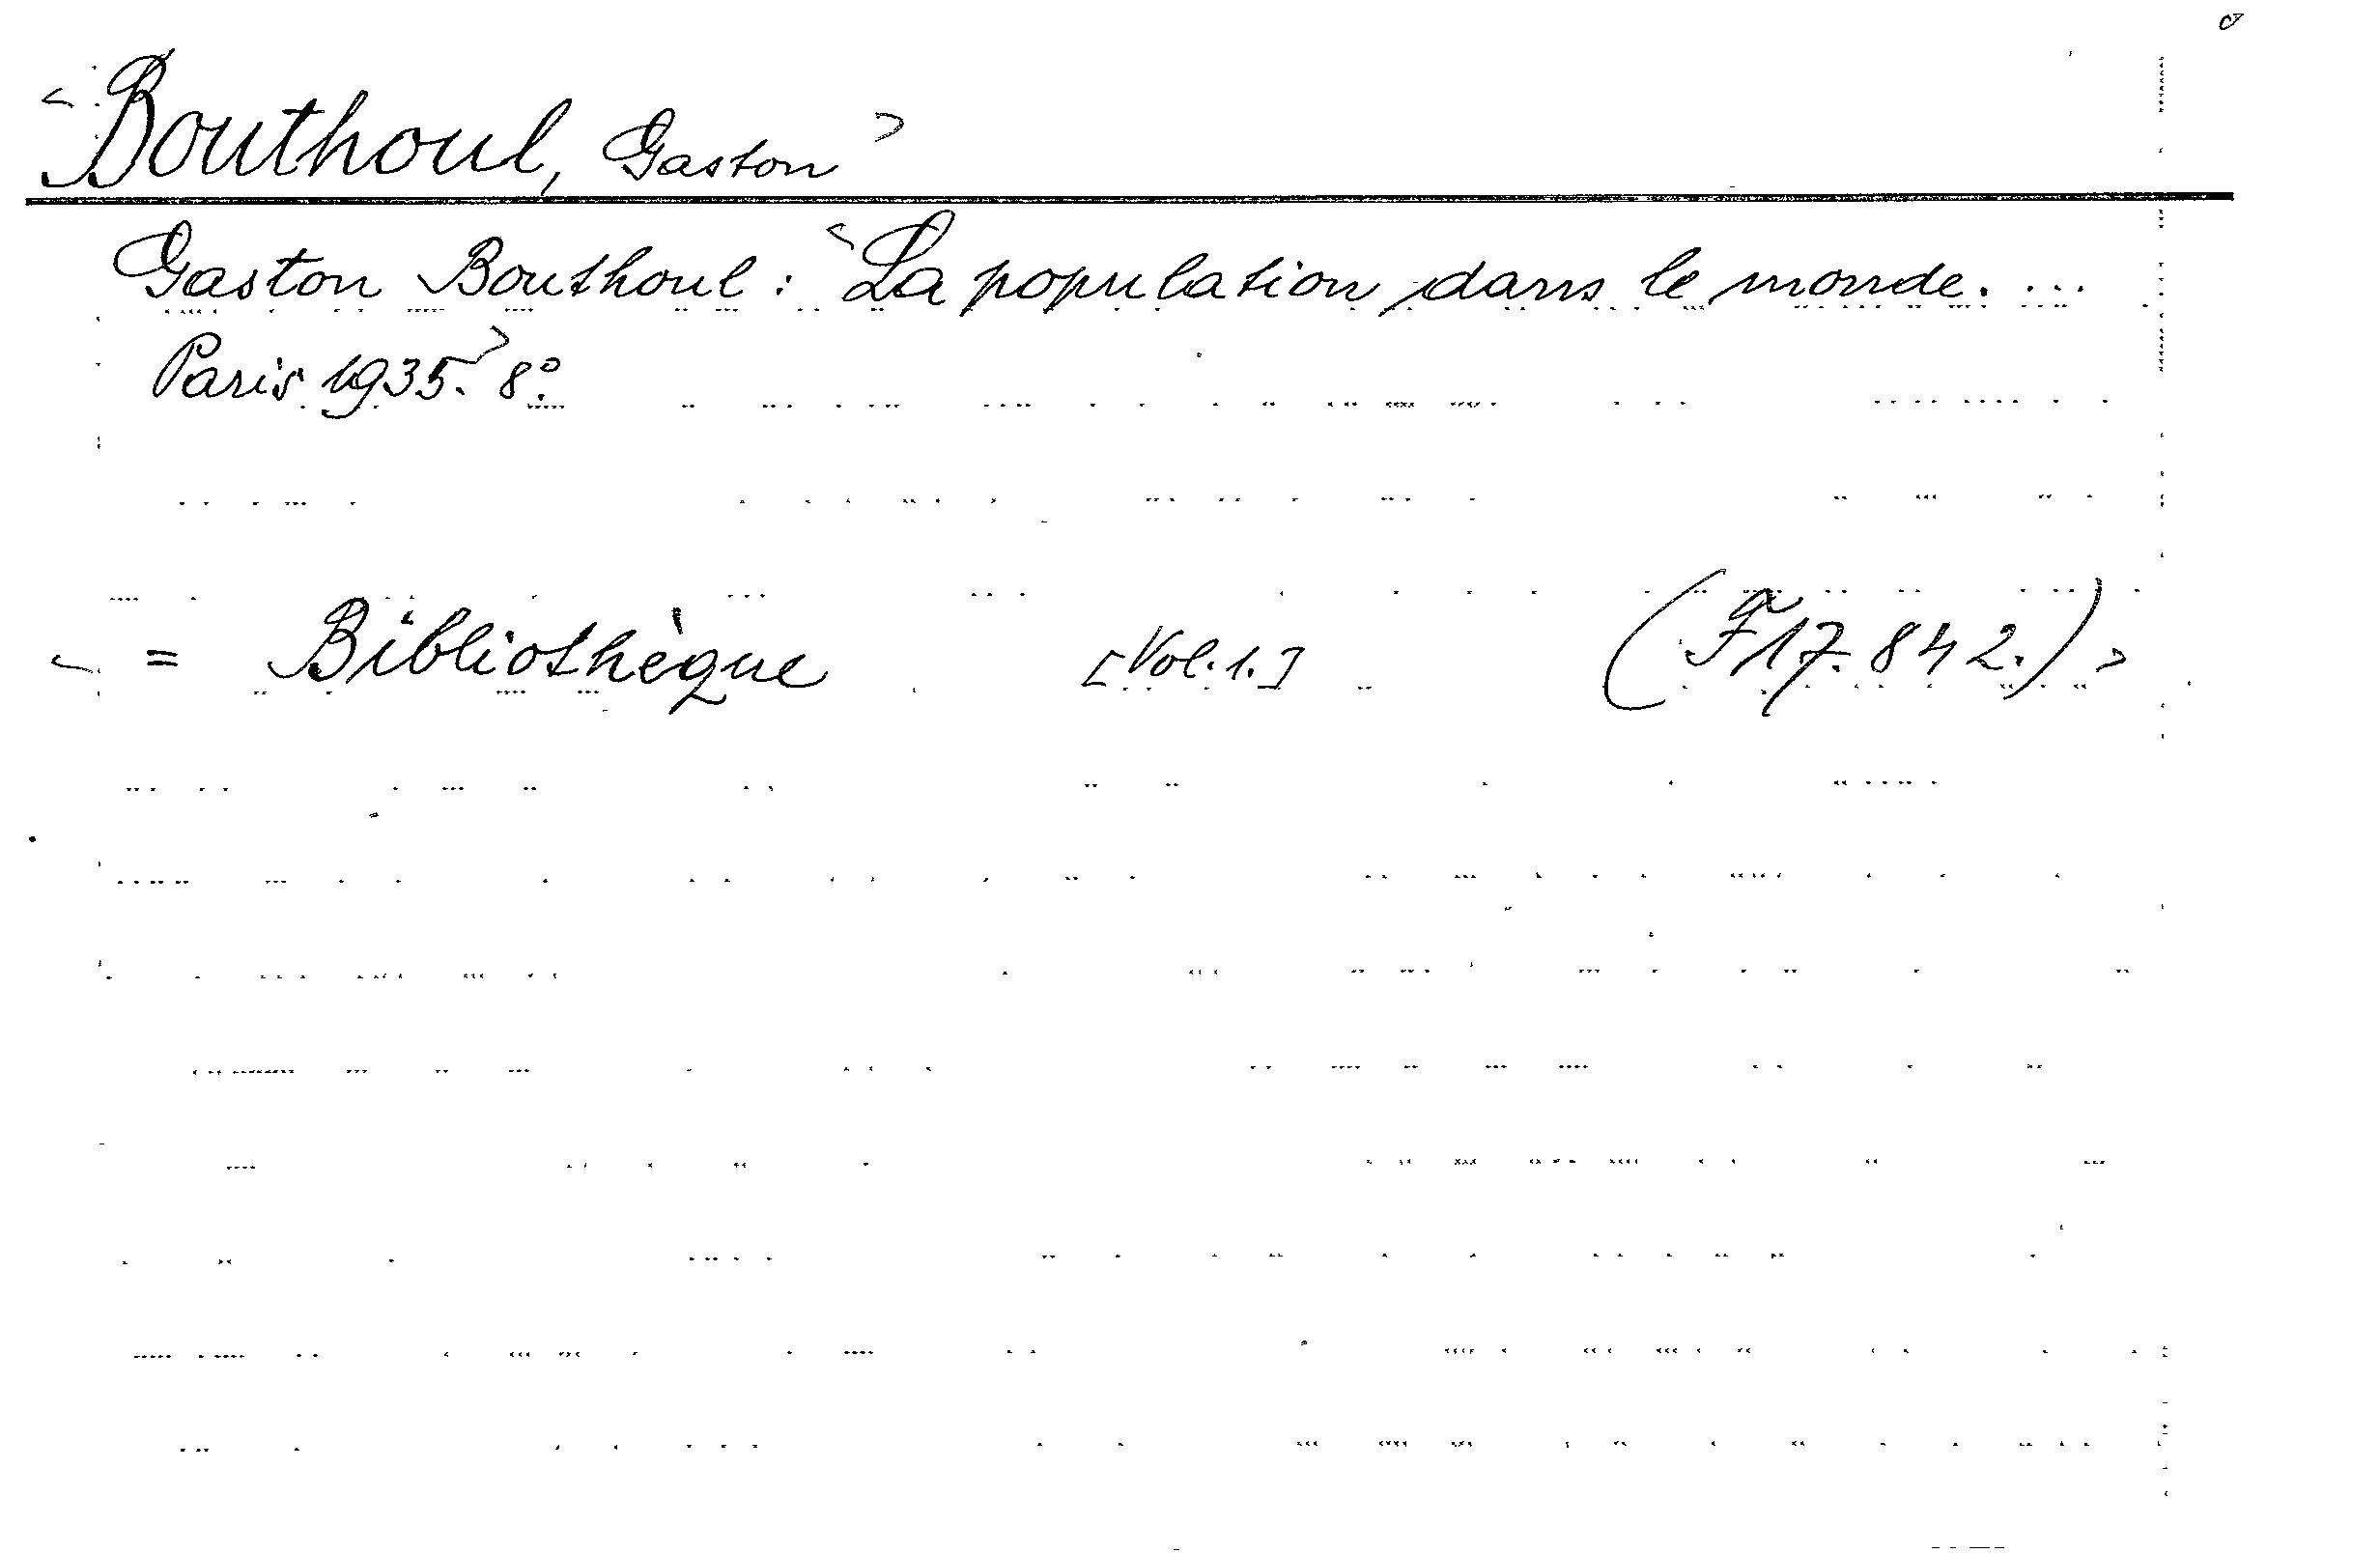 <Bouthoul, Gaston>
Gaston Bouthoul: <La population dans le monde. ...
Paris 1935.> 8°.
< = Bibliothèque [Vol. 1.] (F 17.842.) >